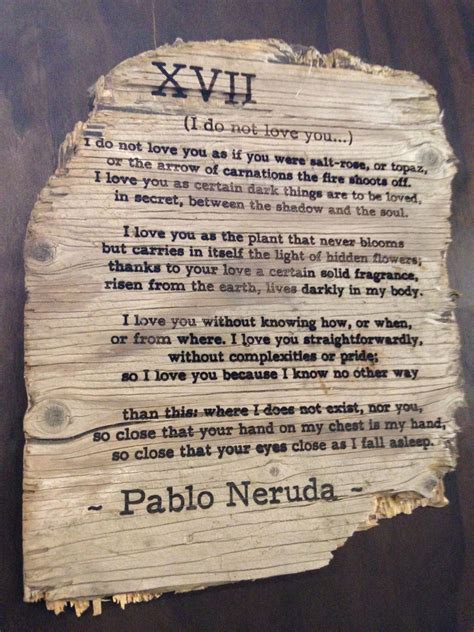 XVII
(I do not love you...)
I do not love you as if you were salt-rose, or topaz,
or the arrow of carnations the fire shoots off.
I love you as certain dark things are to be loved,
in secret, between the shadow and the soul.
I love you as the plant that never blooms
but carries in itself the light of hidden flowers;
thanks to your love a certain solid fragrance,
risen from the earth, lives darkly in my body.
I love you without knowing how, or when,
or from where. I love you straightforwardly,
without complexities or pride;
so I love you because I know no other way
than this: where I does not exist, nor you,
so close that your hand on my chest is my hand,
so close that your eyes close as I fall asleep.
~ Pablo Neruda ~